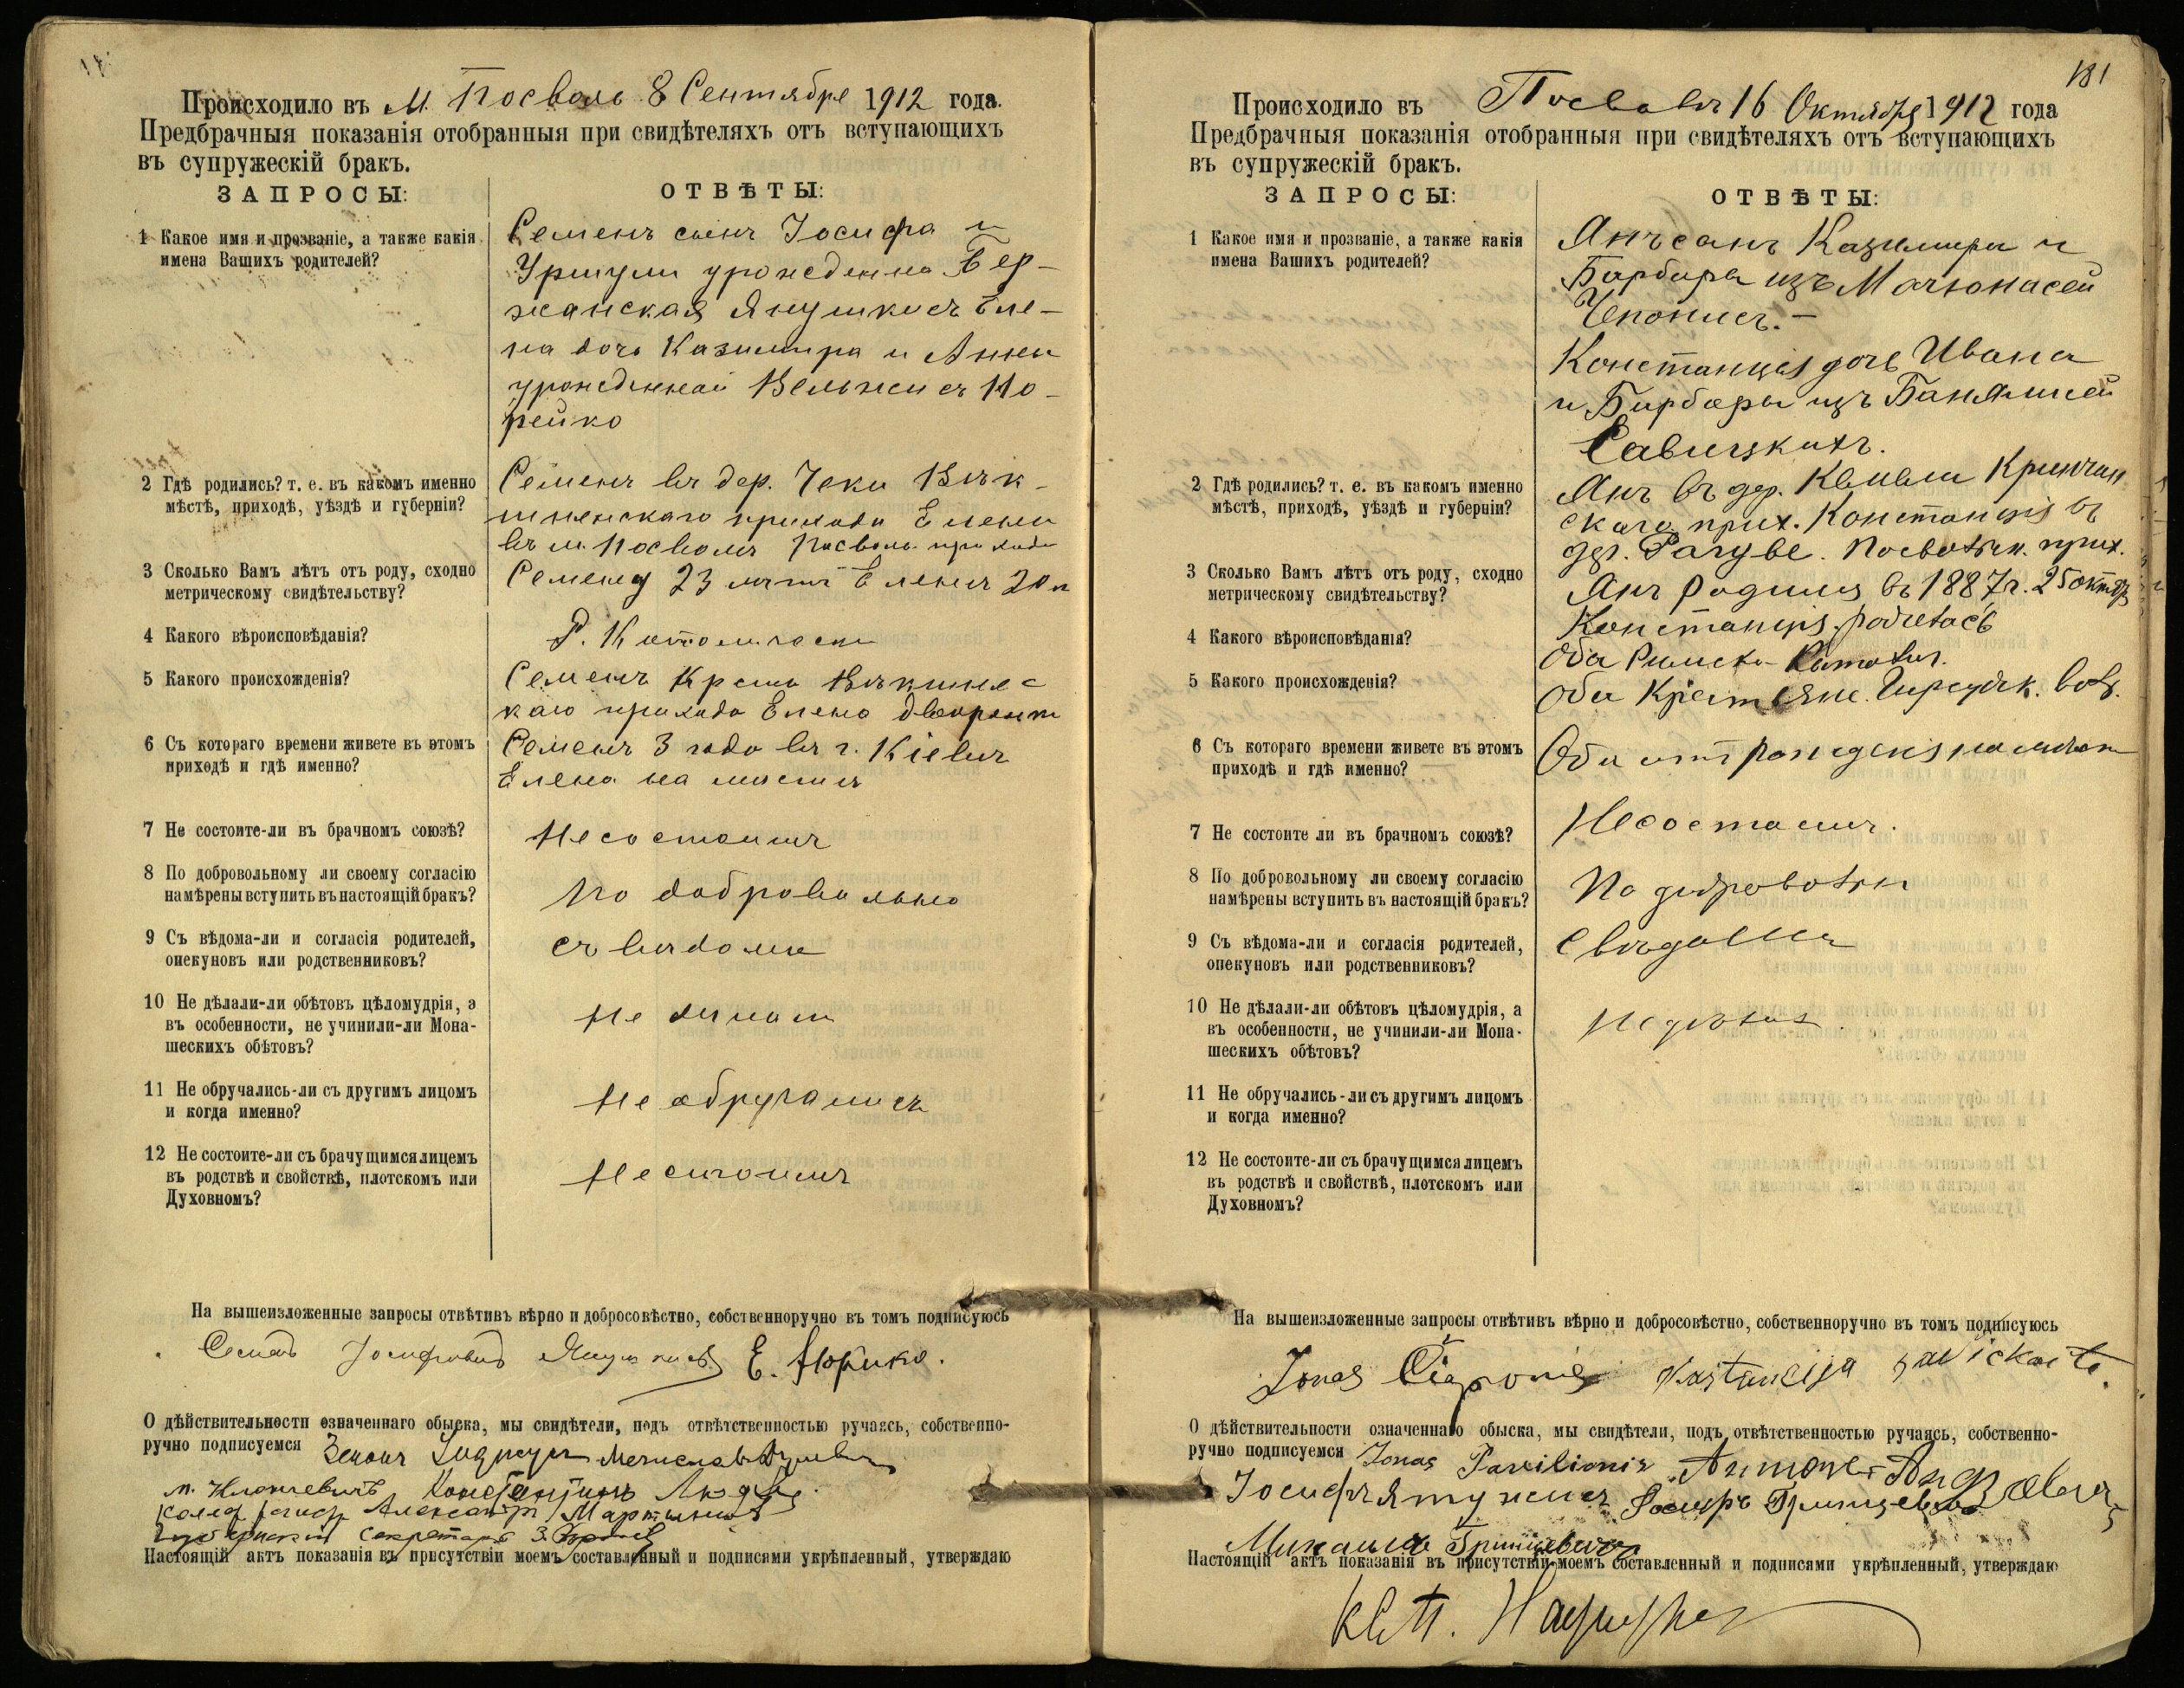 Происходило въ М. Посволь 8 Сентября 1912 года.
Предбрачныя показанія отобранныя при свидѣтеляхъ отъ вступающихъ
въ супружескій бракъ.
ЗАПРОСЫ:
ОТВѢТЫ:
1 Какое имя и прозваніе, а также какія
имена Вашихъ родителей?
Семенъ сынъ Іосифа и
Уршули урожденна Бер-
жанская Янушкисъ Еле-
на дочь Казимира и Анны
урожденной
рейко
2 Гдѣ родились? т. е. въ какомъ именно
мѣстѣ, приходѣ, уѣздѣ и губерніи?
Семенъ въ дер. Чеки Вѣк-
шнянскаго прихода Елена
въ м. Посволѣ Посволь. прихода
3 Сколько Вамъ лѣтъ отъ роду, сходно
метрическому свидѣтельству?
Семену 23 лѣтъ Еленѣ 20 л
4 Какого вѣроисповѣданія?
Р. Католическ
5 Какого происхожденія?
Семенъ Крест Вѣкшнянс
каго прихода Елена дворянк
6 Съ котораго времени живете въ этомъ
приходѣ и гдѣ именно?
Семенъ 3 года въ г. Кіевѣ
Елена на мѣстѣ
7 Не состоите-ли въ брачномъ союзѣ?
Не состоимъ
8 По добровольному ли своему согласію
намѣрены вступить въ настоящій бракъ?
По добровольно
9 Съ вѣдома-ли и согласія родителей,
опекуновъ или родственниковъ?
съ вѣдома
10 Не дѣлали-ли обѣтовъ цѣломудрія, а
въ особенности, не учинили-ли Мона-
шескихъ обѣтовъ?
Не дѣлали
11 Не обручались-ли съ другимъ лицомъ
и когда именно?
Не обручались
12 Не состоите-ли съ брачущимся лицемъ
въ родствѣ и свойствѣ, плотскомъ или
Духовномъ?
Не состоимъ
На вышеизложенные запросы отвѣтивъ вѣрно и добросовѣстно, собственноручно въ томъ подписуюсь
Іосифовъ Янушкисъ Е.
О дѣйствительности означеннаго обыска, мы свидѣтели, подъ отвѣтственностью ручаясь, собственно-
ручно подписуемся Зенонъ
Константинъ
Александръ
Губернскій Секретарь З.
Настоящій актъ показанія въ присутствіи моемъ составленный и подписями укрѣпленный, утверждаю
181
Происходило въ Посволѣ 16 Октября 1912 года
Предбрачныя показанія отобранныя при свидѣтеляхъ отъ вступающихъ
въ супружескій бракъ.
ЗАПРОСЫ:
ОТВѢТЫ:
1 Какое имя и прозваніе, а также какія
имена Вашихъ родителей?
Янъ сынъ Казимира и
Барбары изъ Мачюнасей
Чепонисъ.-
Констанція дочь Ивана
и Барбары изъ
Савицкихъ.
2 Гдѣ родились? т. е. въ какомъ именно
мѣстѣ, приходѣ, уѣздѣ и губерніи?
Янъ въ дер. Кринчин
скаго прих. Констанція въ
дер. Рагубе. Посвольск. прих.
3 Сколько Вамъ лѣтъ отъ роду, сходно
метрическому свидѣтельству?
Янъ Родился въ 1887 г. 25 октяб
Констанція родилась
4 Какого вѣроисповѣданія?
Оба Римско-Католич.
5 Какого происхожденія?
Оба Крестьяне. вол.
6 Съ котораго времени живете въ этомъ
приходѣ и гдѣ именно?
Оба отъ рожденія на мѣстѣ
7 Не состоите ли въ брачномъ союзѣ?
Не состоимъ.
8 По добровольному ли своему согласію
намѣрены вступить въ настоящій бракъ?
По добровольн
9 Съ вѣдома-ли и согласія родителей,
опекуновъ или родственниковъ?
С вѣдома
10 Не дѣлали-ли обѣтовъ цѣломудрія, а
въ особенности, не учинили-ли Мона-
шескихъ обѣтовъ?
Не дѣлали.
11 Не обручались-ли съ другимъ лицомъ
и когда именно?
12 Не состоите-ли съ брачущимся лицемъ
въ родствѣ и свойствѣ, плотскомъ или
Духовномъ?
На вышеизложенные запросы отвѣтивъ вѣрно и добросовѣстно, собственноручно въ томъ подписуюсь
Jonas Čiaponis Kastancija Savickaite.
О дѣйствительности означеннаго обыска, мы свидѣтели, подъ отвѣтственностью ручаясь, собственно-
ручно подписуемся Jonas Pavilionis
Іосифъ
Михаилъ
Настоящій актъ показанія въ присутствіи моемъ составленный и подписями укрѣпленный, утверждаю